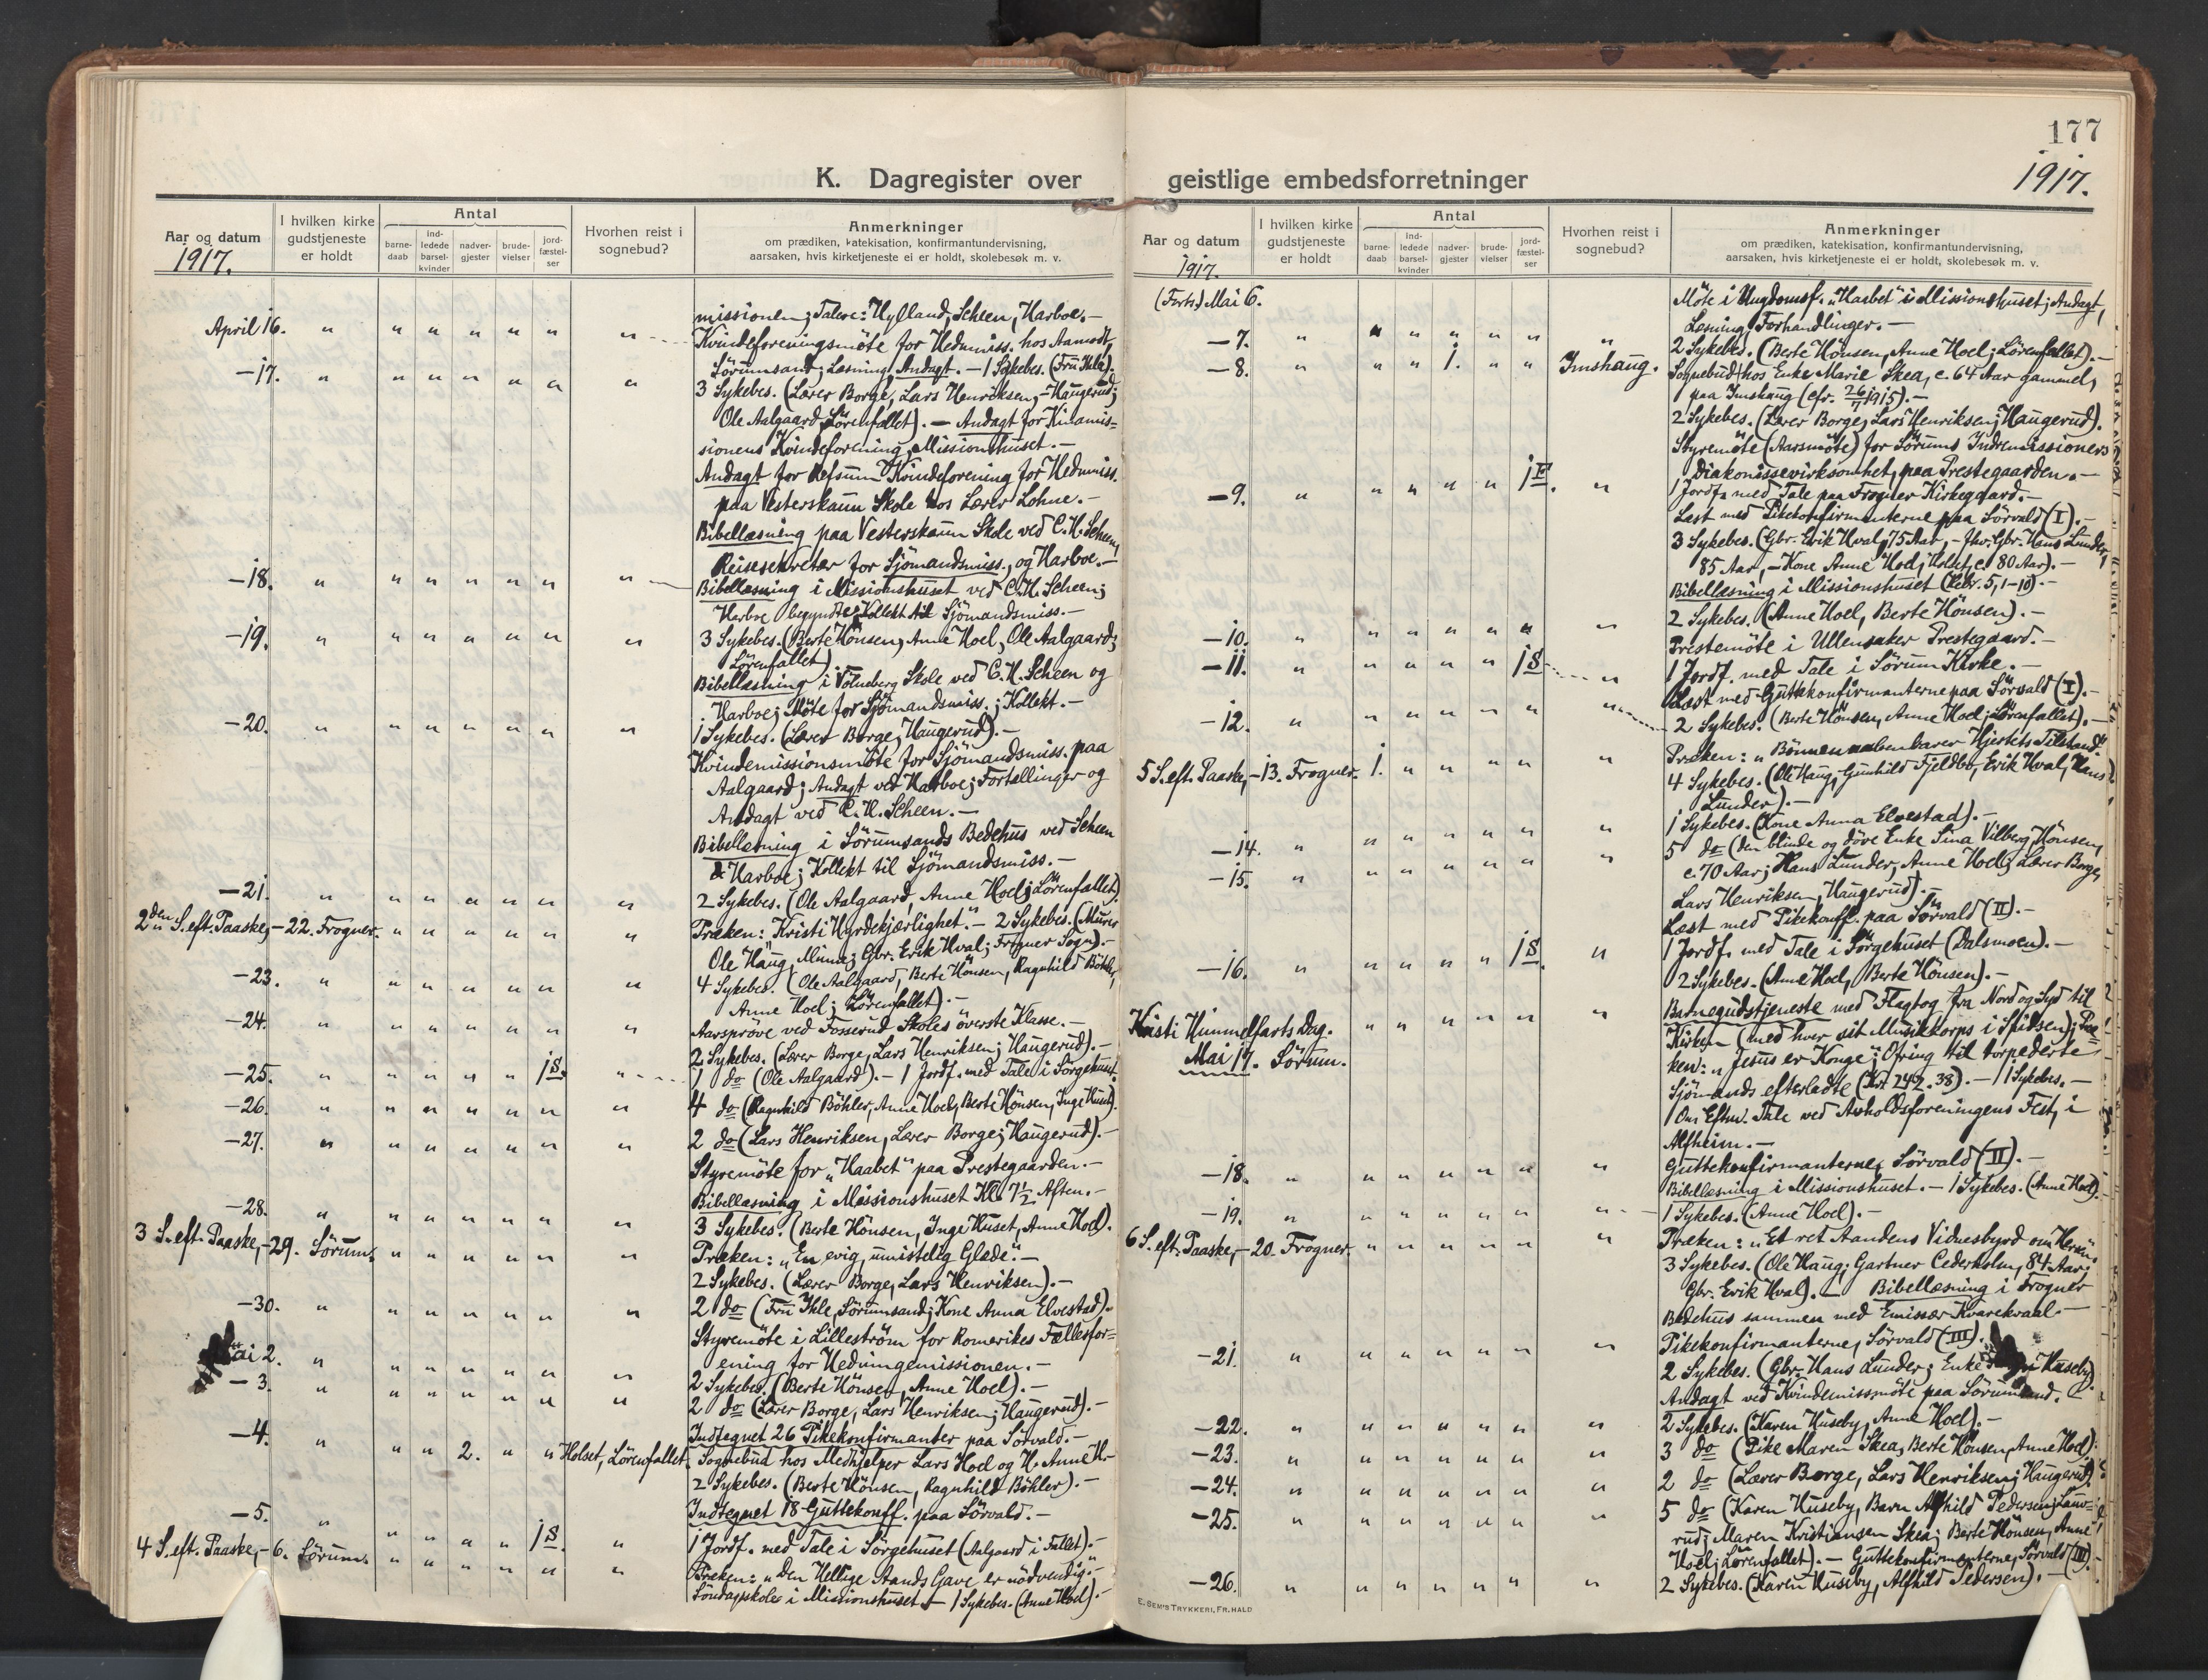 177
K. Dagregister over
geistlige embedsforretninger
1917.
Aar og datum
1917.
I hvilken kirke
gudstjeneste
er holdt
Antal
barne-
daab
ind-
ledede
barsel-
kvinder
nadver-
gjester
brude-
vielser
jord-
fæstel-
ser
Hvorhen reist i
sognebud?
Anmerkninger
om prædiken, katekisation, konfirmantundervisning,
aarsaken, hvis kirketjeneste ei er holdt, skolebesøk m. v.
missionen; Talere: Hylland, Scheen, Harboe.-
April 16. " " " " " " " Kvindeforeningsmöte for Hedmiss. hos Aamodt,
Sörumsand; Læsning, Andagt. - 1 Sykebes. (Fru Ihle).
-17. " " " " " " " 3 Sykebes. (Lærer Borge, Lars Henriksen, - Haugerud;
Ole Aalgaard, Lörenfallet). - Andagt for Kinamis=
sionens Kvindeforening, Missionshuset. -
Andagt for Refsum Kvindeforening for Hedmiss.
paa Vesterskaun Skole hos Lærer Lohne. -
Bibellæsning paa Vesterskaun Skole ved C. H. Scheen,
Reisesekretær for Sjömandsmiss., og Harboe. -
-18. " " " " " " " Bibellæsning i Missionshuset ved C. H. Scheen;
Harboe begyndte; Kollekt til Sjömandsmiss. -
-19. " " " " " " " 3 Sykebes. (Berte Hönsen, Anne Hoel, Ole Aalgaard;
Lörenfallet).
Bibellæsning i Völneberg Skole ved C. H. Scheen og
Harboe; Möte for Sjömandsmiss.; Kollekt. -
-20. " " " " " " " 1 Sykebes. (Lærer Borge, Haugerud). -
Kvindemissionsmöte for Sjömandsmiss. paa
Aalgaard; Andagt ved Harboe; Fortællinger og
Andagt ved C. H. Scheen. -
Bibellæsning i Sörumsands Bedehus ved Scheen
& Harboe; Kollekt til Sjömandsmiss. -
-21. " " " " " " " 2 Sykebes. (Ole Aalgaard, Anne Hoel; Lörenfallet)
2den S. eft. Paaske, - 22. Frogner. " " " " " " Præken: "Kristi Hyrdekjærlighet." - 2 Sykebes. (Murer
Ole Haug, Gbr. Erik Hval; Frogner Sogn). -
-23. " " " " " " " 4 Sykebes. (Ole Aalgaard, Berte Hönsen, Ragnhild Böhler,
Anne Hoel; Lörenfallet). -
-24. " " " " " " " Aarspröve ved Fosserud Skoles överste Klasse. -
2 Sykebes. (Lærer Borge, Lars Henriksen; Haugerud). -
-25. " " " " " 1 S. " 1 do (Ole Aalgaard). - 1 Jordf. med Tale i Sörgehuset.
-26. " " " " " " " 4 do (Ragnhild Böhler, Anne Hoel, Berte Hönsen, Inge Huset).
-27. " " " " " " " 2 do (Lars Henriksen, Lærer Borge; Haugerud). -
Styremöte for "Haabet" paa Prestegaarden. -
Bibellæsning i Missionshuset Kl. 7½ Aften. -
-28. " " " " " " " 3 Sykebes. (Berte Hönsen, Inge Huset, Anne Hoel).
3 S. eft. Paaske, - 29. Sörum. " " " " " " Præken: "En evig, umistelig Glæde." -
2 Sykebes. (Lærer Borge, Lars Henriksen). -
-30. " " " " " " " 2 do (Fru Ihle, Sörumsand; Kone Anna Elvestad).
Styremöte i Lilleström for Romerikes Fællesfor=
ening for Hedningemissionen. -
Mai 2. " " " " " " " 2 Sykebes. (Berte Hönsen, Anne Hoel). -
- 3. " " " " " " " 2 do (Lærer Borge, Lars Henriksen; Haugerud). -
Indtegnet 26 Pikekonfirmanter paa Sörvald. -
-4. " " " 2. " " Holset, Lörenfallet. Sognebud hos Medhjelper Lars Hoel og H. Anne H.-
2 Sykebes. (Berte Hönsen, Ragnhild Böhler). -
Indtegnet 18 Guttekonff. paa Sörvald. -
-5. " " " " " 1 S. " 1 Jordf. med Tale i Sörgehuset (Aalgaard i Fallet). -
4 S. eft. Paaske, - 6. Sörum. " " " " " " Præken: "Den Hellige Aands Gave er nödvendig." -
Söndagsskole i Missionshuset. - 1 Sykebes. (Anne Hoel). -
Aar og datum
1917.
I hvilken kirke
gudstjeneste
er holdt
Antal
barne-
daab
ind-
ledede
barsel-
kvinder
nadver-
gjester
brude-
vielser
jord-
fæstel-
ser
Hvorhen reist i
sognebud?
Anmerkninger
om prædiken, katekisation, konfirmantundervisning,
aarsaken, hvis kirketjeneste ei er holdt, skolebesøk m. v.
(Forts.) Mai 6. Möte i Ungdomsf. "Haabet" i Missionshuset; Andagt,
Læsning, Forhandlinger. -
-7. " " " " " " " 2 Sykebes. (Berte Hönsen, Anne Hoel; Lörenfallet). -
-8. " " " 1. " " Imshaug. Sognebud hos Enke Marie Skea, c. 64 Aar gammel,
paa Imshaug (cfr. 26/7 1915). -
2 Sykebes. (Lærer Borge, Lars Henriksen; Haugerud).
Styremöte (Aarsmöte) for Sörums Indremissioners
Diakonissevirksomhet, paa Prestegaarden. -
-9. " " " " " 1 F. " 1 Jordf. med Tale paa Frogner Kirkegaard. -
Læst med Pikekonfirmanterne paa Sörvald (I). -
3 Sykebes. (Gbr. Erik Hval, 75 Aar, - fhv. Gbr. Hans Lunder,
85 Aar, - Kone Anne Hoel, Holset, c. 80 Aar). -
Bibellæsning i Missionshuset (Hebr. 5, 1-10). -
-10. " " " " " " " 2 Sykebes. (Anne Hoel, Berte Hönsen). -
Prestemöte i Ullensaker Prestegaard. -
-11. " " " " " 1 S. " 1 Jordf. med Tale i Sörum Kirke. -
Læst med Guttekonfirmanterne paa Sörvald (I). -
-12. " " " " " " " 2 Sykebes. (Berte Hönsen, Anne Hoel; Lörenfallet). -
5 S. eft. Paaske, - 13. Frogner. 1. " " " " " Præken: "Bönnen aabenbarer Hjertets Tilstand."
4 Sykebes. (Ole Haug, Gunhild Fjeldbo, Erik Hval, Hans
Lunder). -
-14. " " " " " " " 1 Sykebes. (Kone Anna Elvestad). -
-15. " " " " " " " 5 do (Den blinde og döve Enke Sina Vilberg Hönsen,
c. 70 Aar; Hans Lunder, Anne Hoel; Lærer Borge,
Lars Henriksen, Haugerud). -
Læst med Pikekonff. paa Sörvald (II). -
-16. " " " " " 1 S. " 1 Jordf. med Tale i Sörgehuset (Dalsmoen). -
2 Sykebes. (Anne Hoel, Berte Hönsen). -
Kristi Himmelfarts Dag. " " " " " " Barnegudstjeneste med Flagtog fra Nord og Syd til
Mai 17. Sörum. Kirken (med hver sit Musikkorps i Spidsen); Præ=
ken: "Jesus er Konge"; Ofring til torpederte
Sjömands efterladte (Kr. 242.38). - 1 Sykebes. -
Om Efterm. Tale ved Avholdsforeningens Fest, i
Alfheim. -
-18. " " " " " " " Guttekonfirmanterne, Sörvald (II). -
Bibellæsning i Missionshuset. - 1 Sykebes. (Anne Hoel).
-19. " " " " " " " 1 Sykebes. (Anne Hoel). -
6 S. eft. Paaske, - 20. Frogner. " " " " " " Præken: "Et ret Aandens Vidnesbyrd om Herren"
3 Sykebes. (Ole Haug; Gartner Cederholm, 84 Aar;
Gbr. Erik Hval). - Bibellæsning i Frogner
Bedehus sammen med Emissær Kvarekvaal. -
-21. " " " " " " " Pikekonfirmanterne, Sörvald (III). -
2 Sykebes. (Gbr. Hans Lunder; Enke Huseby)
Andagt ved Kvindemissmöte paa Sörumsand. -
-22. " " " " " " " 2 Sykebes. (Karen Huseby, Anne Hoel). -
-23. " " " " " " " 3 do (Pike Maren Skea, Berte Hönsen, Anne Hoel).
-24. " " " " " " " 2 do (Lærer Borge, Lars Henriksen; Haugerud).
-25. " " " " " " " 5 do (Karen Huseby, Barn Alfhild Pedersen,
rud; Maren Kristiansen Skea; Berte Hönsen, Anne
Hoel; Lörenfallet). - Guttekonfirmanterne, Sörvald (III). -
-26. " " " " " " " 2 Sykebes. (Karen Huseby, Alfhild Pedersen). -
E. SEM'S TRYKKERI, FR.HALD